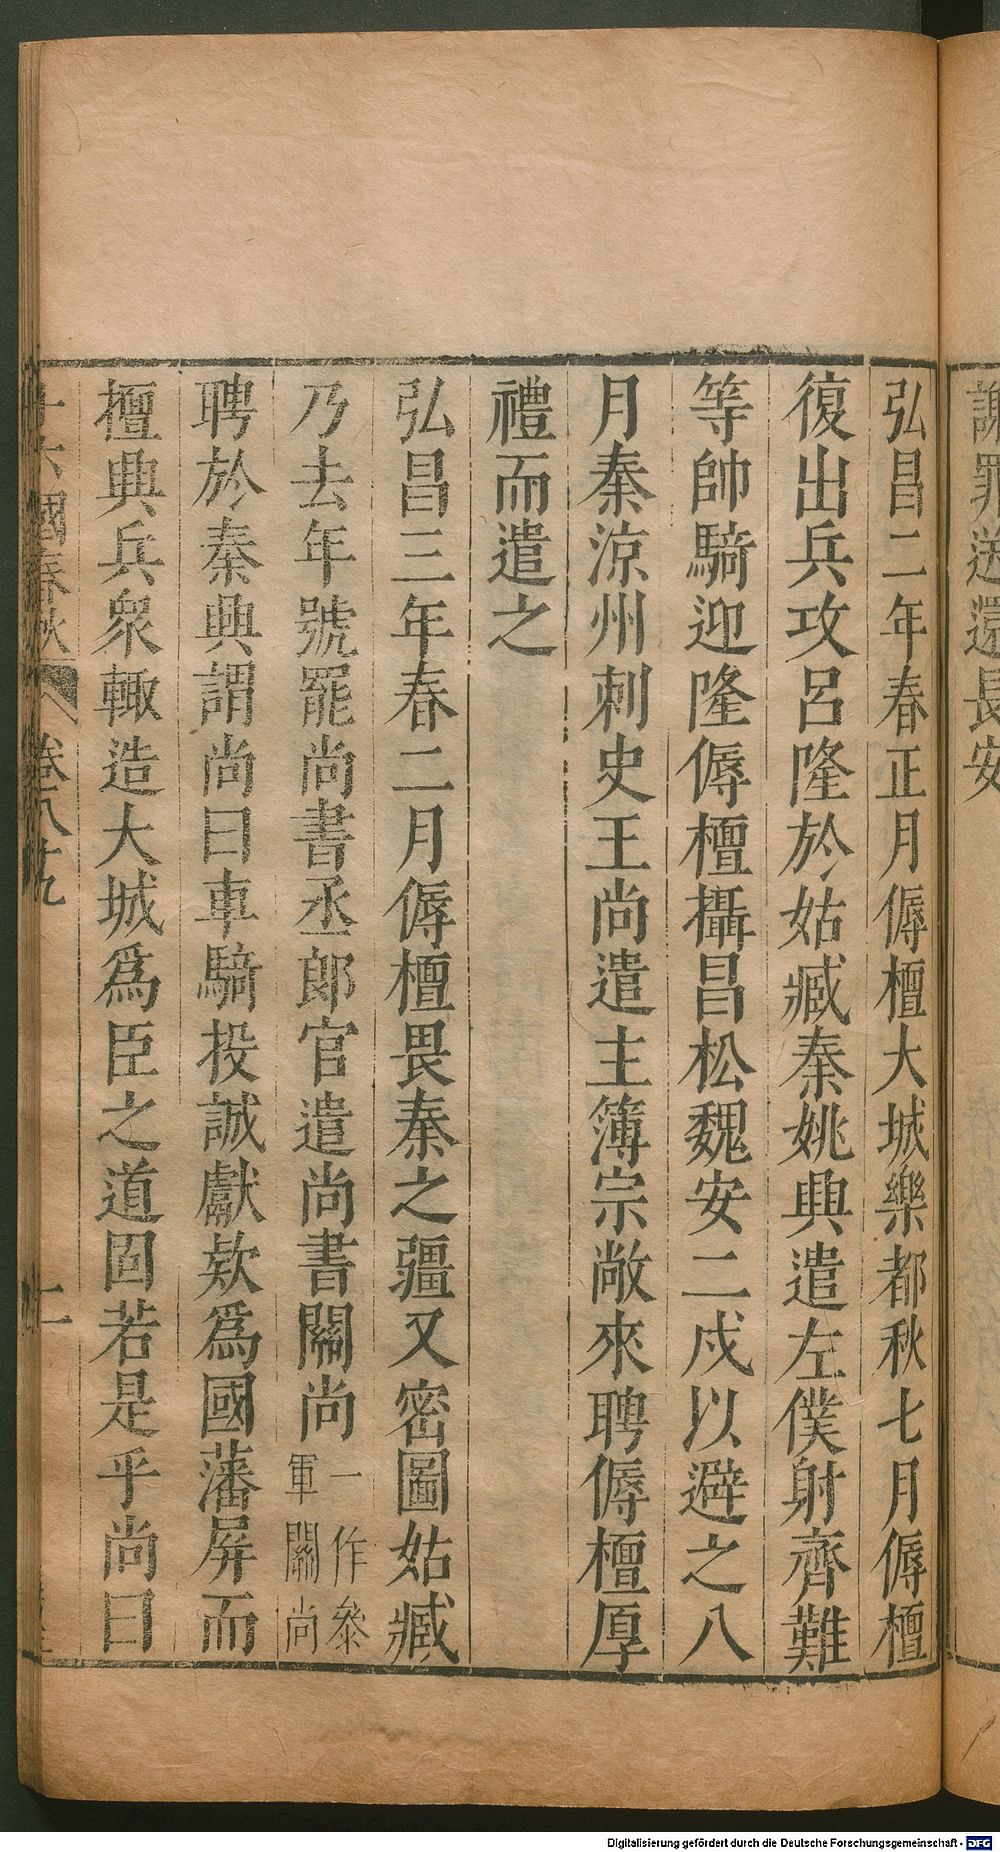 謝罪送還長安
弘昌二年春正月傉檀大城樂都秋七月傉檀
復出兵攻呂隆於姑臧秦姚興遣左僕射齊難
等帥騎迎隆傉檀攝昌松魏安二戍以避之八
月秦涼州刺史王尚遣主簿宗敞來聘傉檀厚
禮而遣之
弘昌三年春二月傉檀畏秦之疆又密圖姑臧
乃去年號罷尚書丞郎官遣尚書關尚一作叅軍關尚
聘於秦興謂尚曰車騎投誠獻欵爲國藩屏而
擅典兵衆輙造大城爲臣之道固若是乎尚曰
十六國春秋 卷八十九 十一
Digitalisierung gefördert durch die Deutsche Forschungsgemeinschaft - DFG